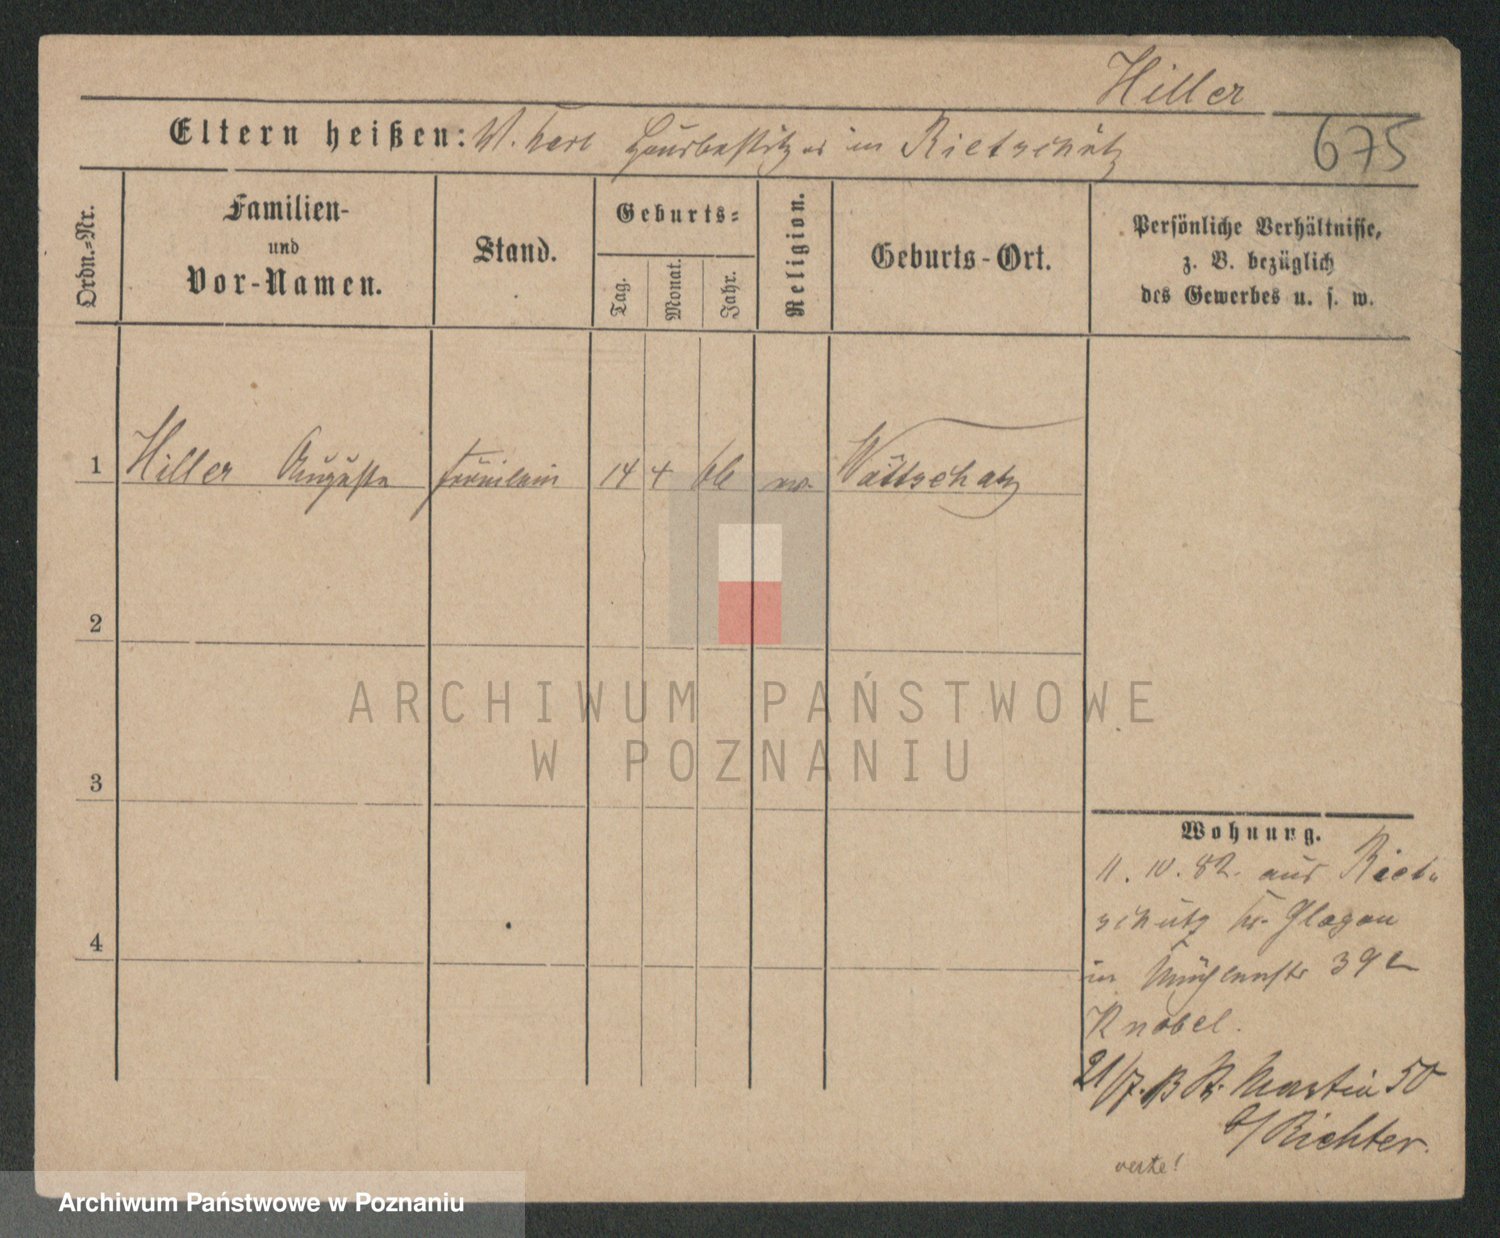 Hiller
Eltern heißen: W. Carl Hausbesitzer in Rietschütz
675
Ordn.=Nr.
Familien-
und
Vor-Namen.
Stand.
Geburts=
Tag.
Monat.
Jahr.
Religion.
Geburts-Ort.
Persönliche Verhältnisse,
z. B. bezüglich
des Gewerbes u. s. w.
1 Hiller Auguste Fräulein 14 4 66 ev. Wättschatz
2
3
4
Wohnung.
11. 10. 82. aus Riet-
schütz Kr. Glogau
in Mühlenstr 39
Knobel.
21/7. St. Martin 50
b/ Richter.
verte!
ARCHIWUM PAŃSTWOWE
W POZNANIU
Archiwum Państwowe w Poznaniu